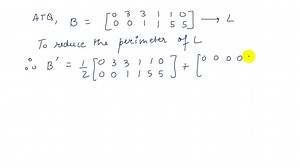 ATQ, B = [0 3 3 1 1 0
0 0 1 1 5 5] → L
To reduce the perimeter of L
∴ B' = 1/2 [0 3 3 1 1 0
0 0 1 1 5 5] + [0 0 0 0